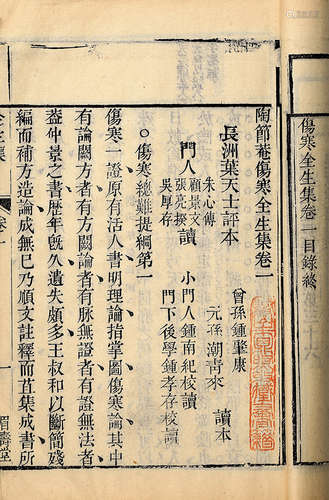 傷寒全生集卷一目錄終
陶節菴傷寒全生集卷一
長洲葉天士評本
曾孫鍾肇康
元孫潮青來
讀本
朱心傳
門人
顧景文
張亮揆
吳厚存
讀
小門人鍾南紀校讀
門下後學鍾孝存校讀
○傷寒總難提綱第一
傷寒一證原有活人書明理論指掌圖傷寒論其中
有論闕方者有方闕論者有脉無證者有證無法者
葢仲景之書歴年旣久遺失頗多王叔和以斷簡殘
編而補方造論成無巳乃順文註釋而苴集成書所
全生集
卷一
眉壽堂